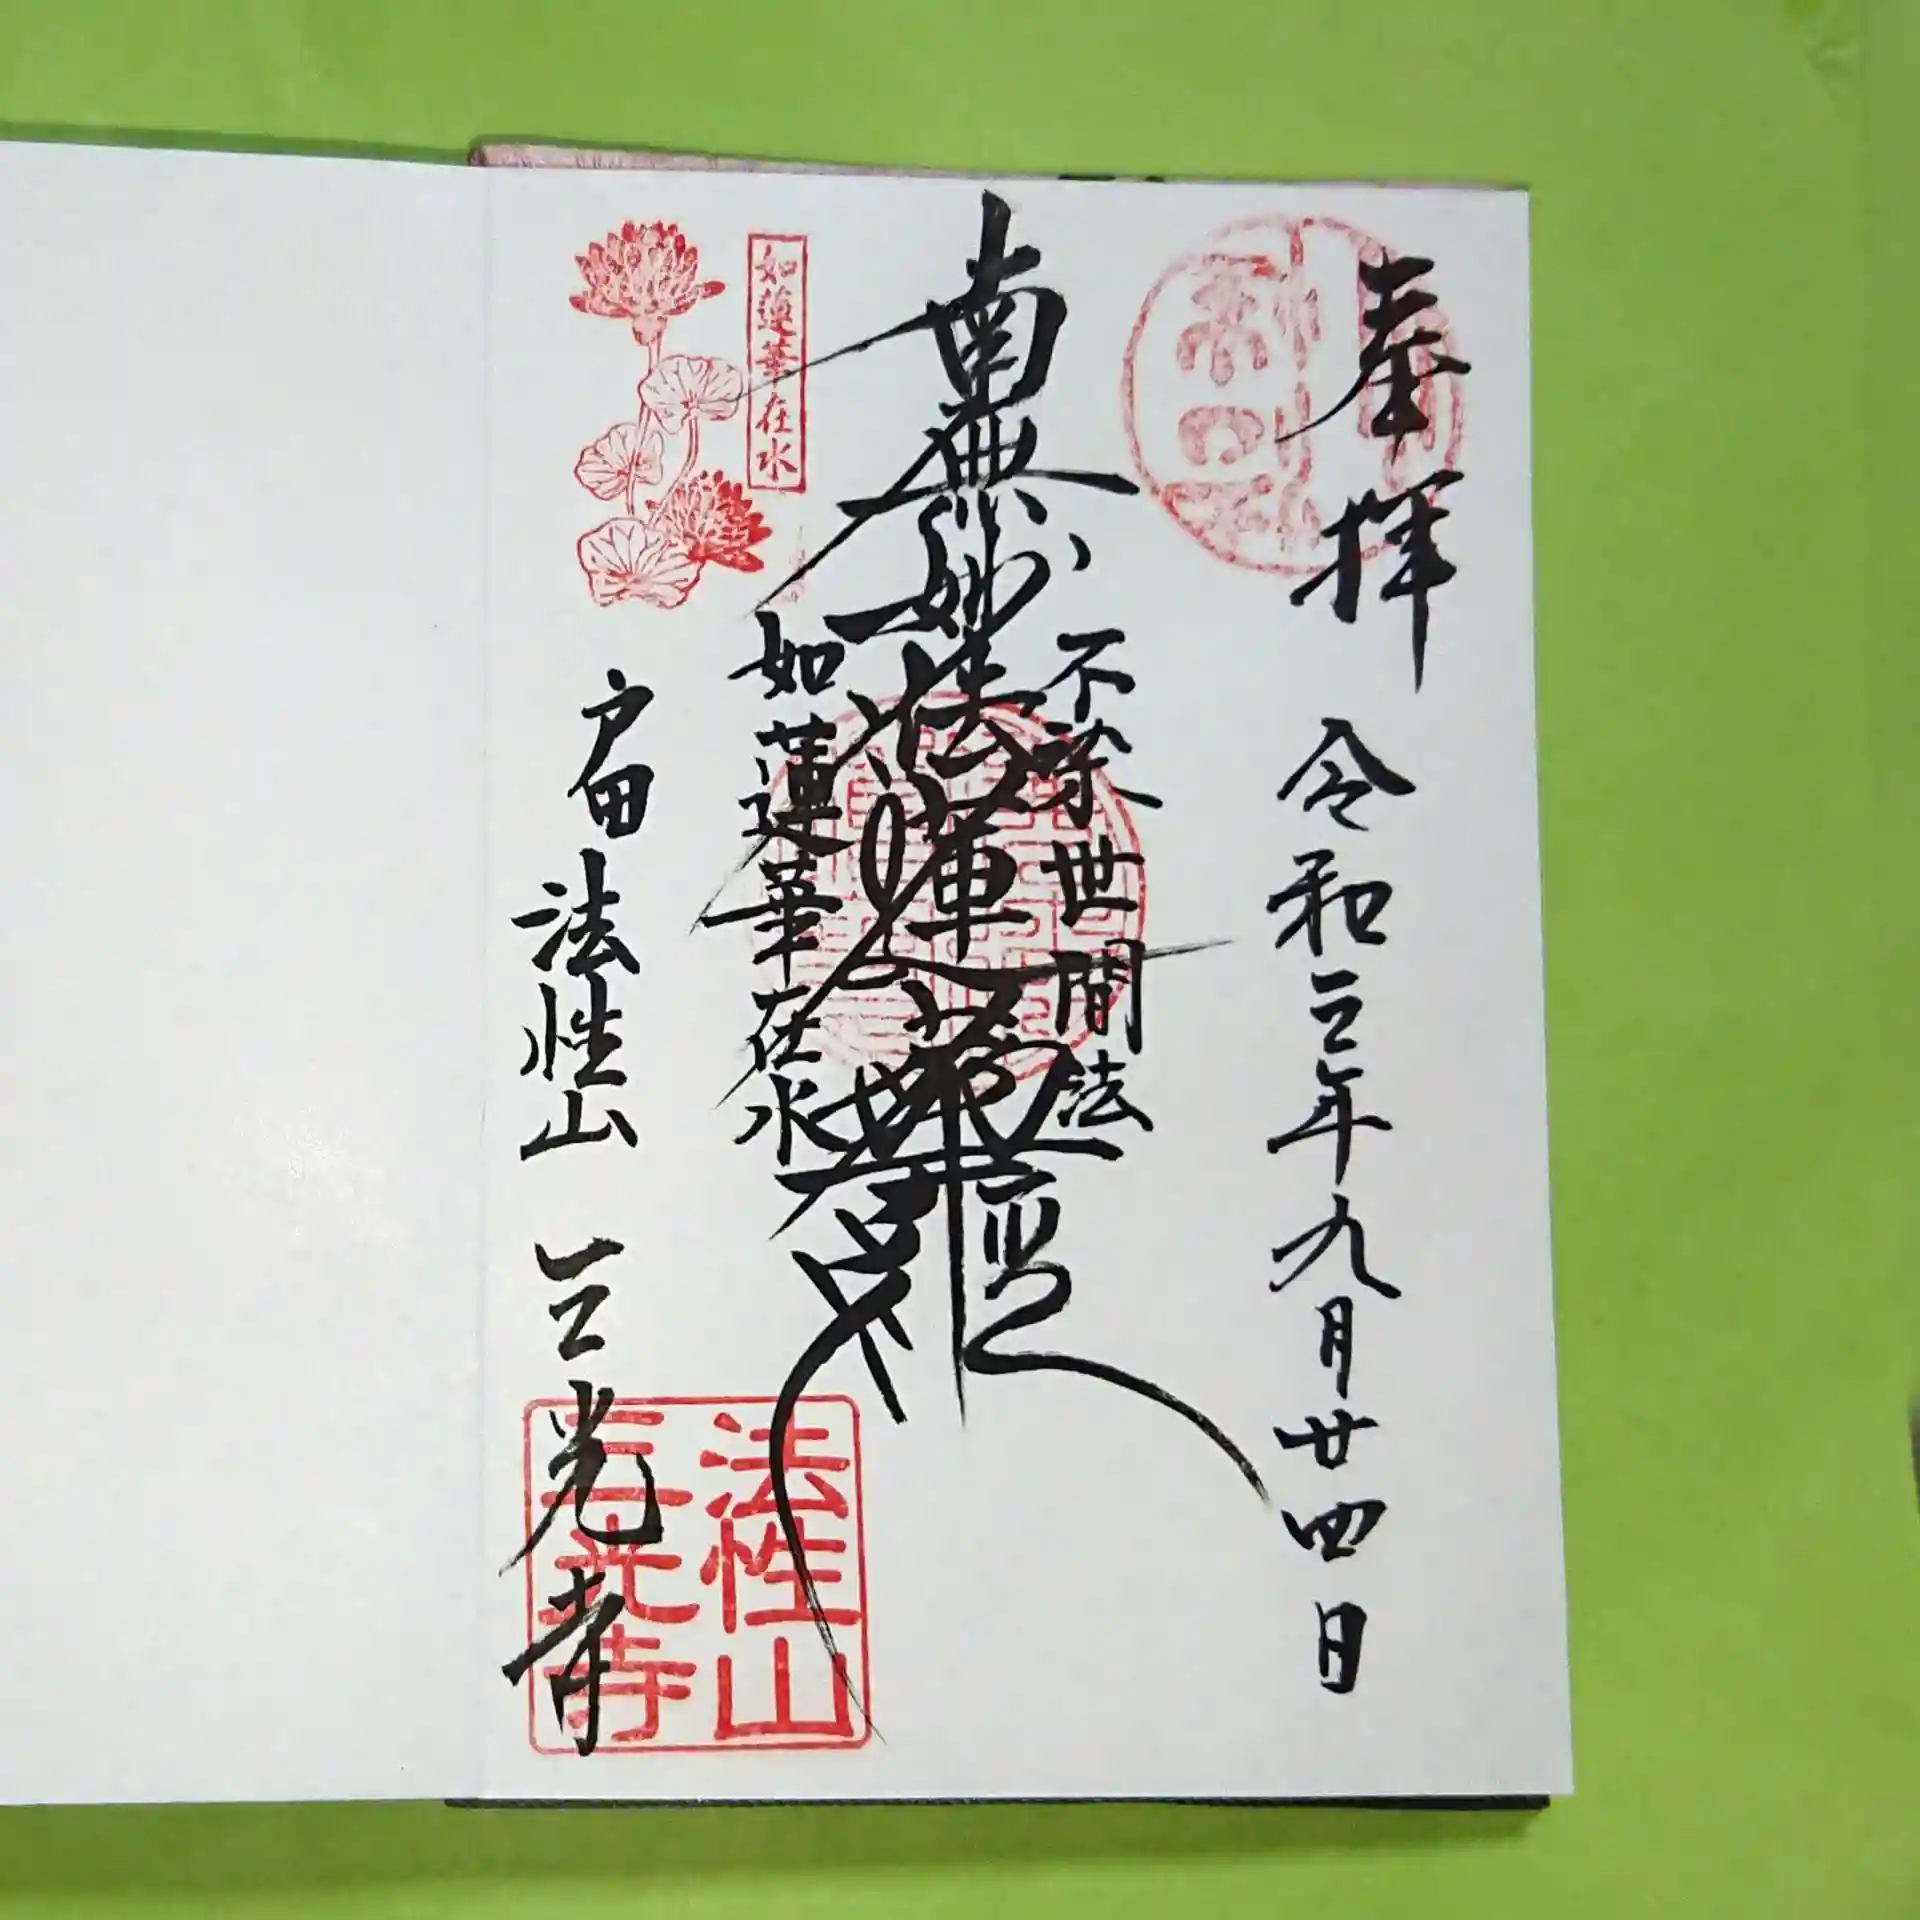 奉拝
令和三年九月廿四日
不染世間法
南無妙法蓮華経
如蓮華在水
如蓮華在水
戸田 法性山 三光寺
法性山
三光寺